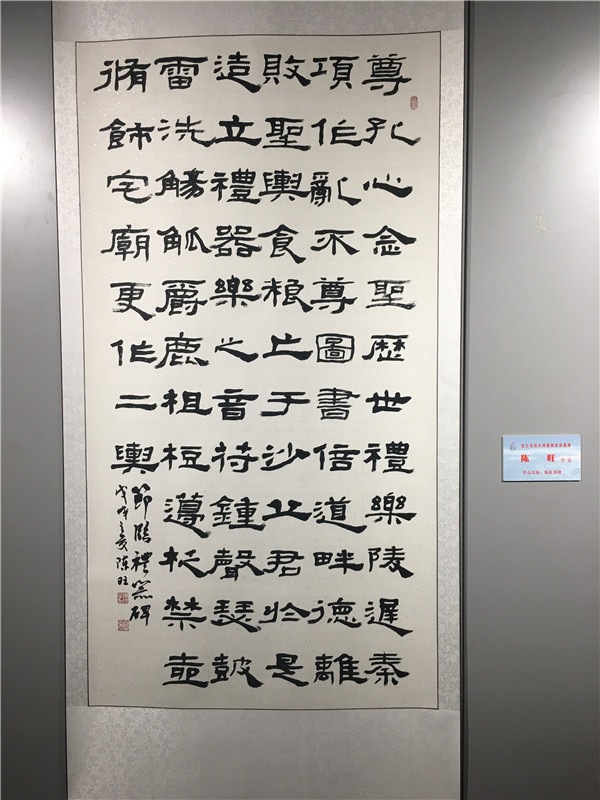 尊孔心念聖歷世禮樂陵遲秦
項作亂不尊圖書倍道畔德離
敗聖輿食粮亡于沙丘君於是
造立禮器樂之音苻鍾聲瑟皷
雷洗觴觚爵鹿柤梪籩柉禁壺
脩飾宅廟更作二輿
節臨禮器碑
戊戌之夏陳旺
陈 旺
作品名称：